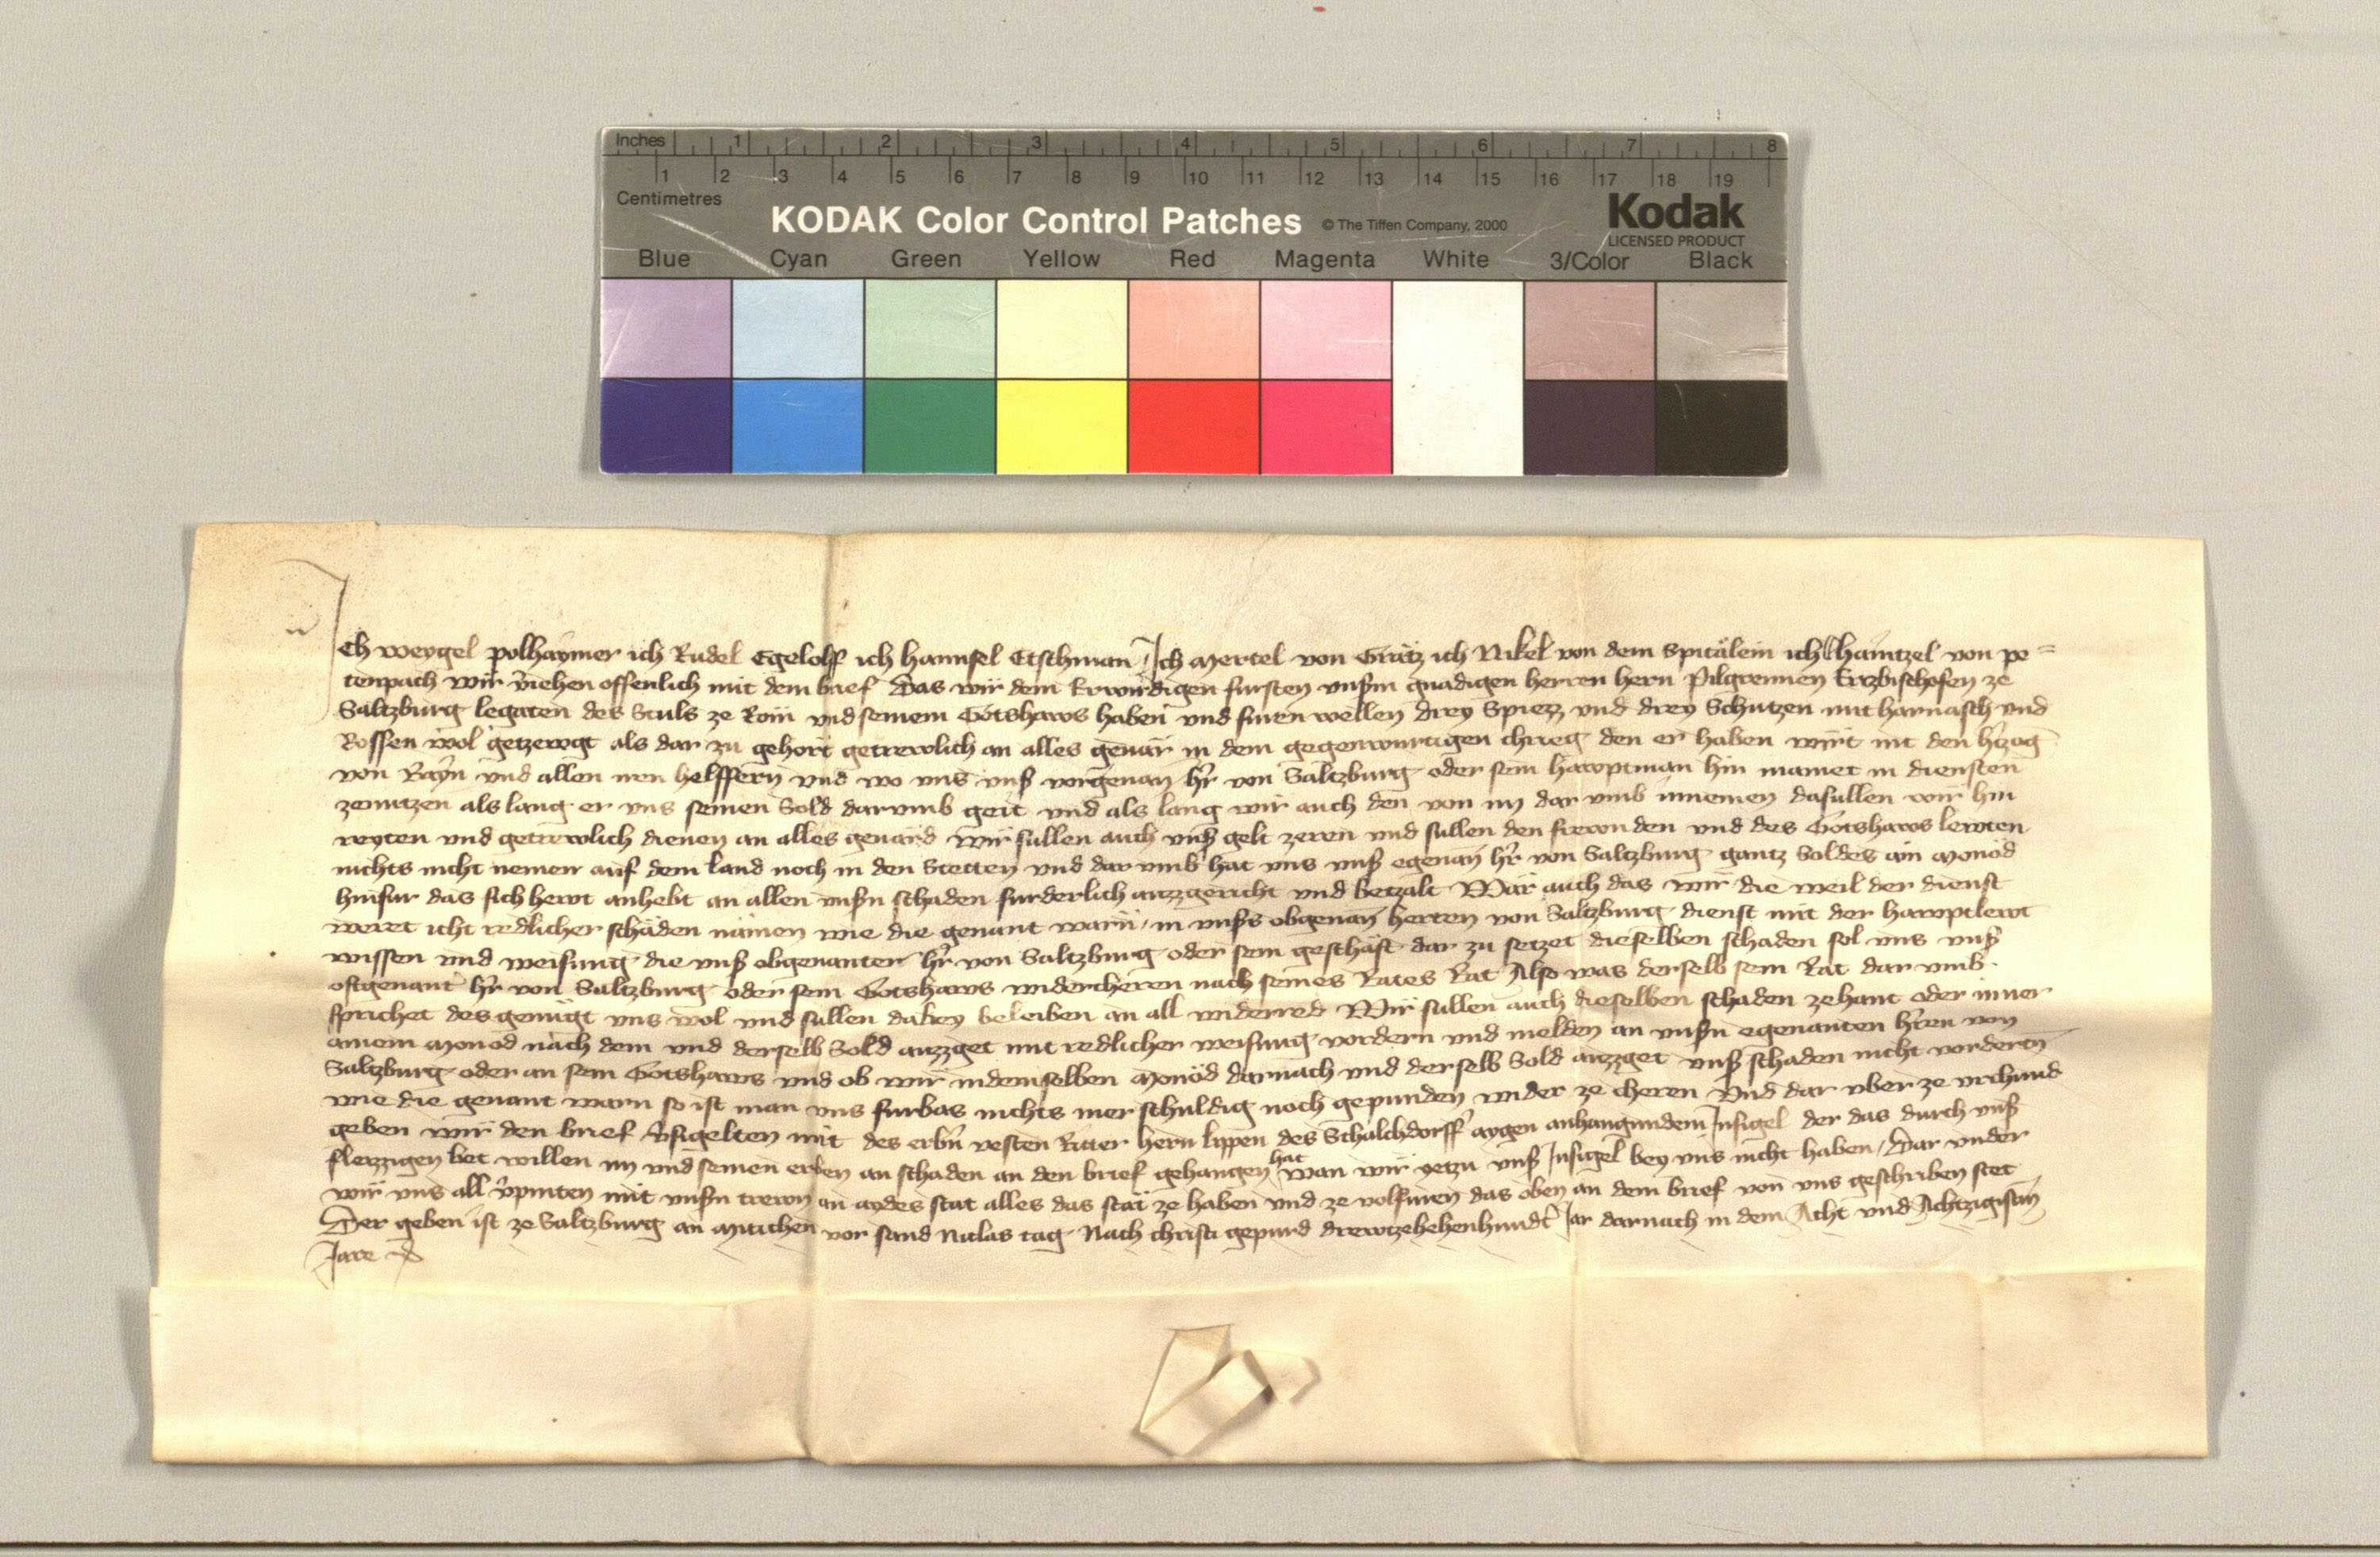 Inches 1 2 3 4 5 6 7 8
1 2 3 4 5 6 7 8 9 10 11 12 13 14 15 16 17 18 19
Centimetres
KODAK Color Control Patches © The Tiffen Company, 2000 Kodak
LICENSED PRODUCT
Blue Cyan Green Yellow Red Magenta White 3/Color Black
Ich weygel polhaymer ich Rudel Egeloff ich hannsel Etschman Ich Mertel von Grätz ich Nikel von dem Spitälein ich haintzel von po=
tenpach wir v̄iehen offenlich mit dem brief Das wir dem Erwirdigen fursten vnßm gnadigen herren hern Pilgreimen Erzbischofen ze
Saltzburg legaten des Stuls ze Rom vnd seinem Gotshaws haben vnd furen wellen drey Spiezz vnd drey Schutzen mit harnasch vnd
Rossen wol getzewgt als dar zu gehort getrewlich an alles geuär in dem gegenwurtigen chrieg den er haben wirt mit den h̄tzog
von Bayrn vnd allen iren helffern vnd wo vns vnß vorgenan h̄r von Saltzburg oder sein hawptman hin mainet in diensten
zenutzen als lang er vns seinen Sold darumb geit vnd als lang wir auch den von im dar vmb innemen da sullen wir hin
reyten vnd getrewlich dienen an alles geuärd wir sullen auch vnß gelt zeren vnd sullen den frewnden vnd des Gotshaws lewten
nichts nicht nemen auf dem land noch in den Stetten vnd dar vmb hat vns vnß egenan h̄r von Saltzburg gantz Soldes ain Monod
hinfur das sich hewt anhebt an allen vnßn schaden furderlich auzzgericht vnd betzalt Wär auch das wir die weil der dienst
weret icht redlicher schäden nämen wie die genant warn in vnßs obgenan herren von Saltzburg dienst mit der hawptlewt
wissen vnd weisung die vnß obgenanter h̄r von Saltzburg oder sein geschäft dar zu setzet dieselben schaden sol vns vnß
oftgenant h̄r von Saltzburg oder sein Gotshaws widercheren nach seines Rates Rat Also was derselb sein Rat dar vmb
sprichet des genugt vns wol vnd sullen dabey beleiben an all widerred Wir sullen auch dieselben schaden zehant oder inner
ainem Monod nach dem vnd derselb Sold auzzget mit redlicher weisung vordern vnd melden an vnßn egenanten h̄ren von
Saltzburg oder an sein Gotshaws vnd ob wir in demselben Monod darnach vnd derselb Sold auzzget vnß schaden nicht vorderten
wie die genant warn so ist man vns furbas nichts mer schuldig noch gepunden wider ze cheren Vnd dar vber ze vrchund
geben wir den brief v̄sigelten mit des erbn vesten Ritter hern lippen des Schalchdorff aygen anhangundem Insigel der das durch vnß
fleizzigen bet willen im vnd seinen erben an schaden an den brief gehangen hat wan wir yetzu vnß Insigel bey vns nicht haben / Dar vnder
wir vns all v̄pinten mit vnßn trewn an aydes stat alles das stät ze haben vnd ze volfuren das oben an dem brief von vns geschriben stet
Der geben ist ze Saltzburg an Mitichen vor sand Niclas tag Nach christi gepurd drewtzehehenhundt Jar darnach in dem Acht vnd Achtzigisten
Jare